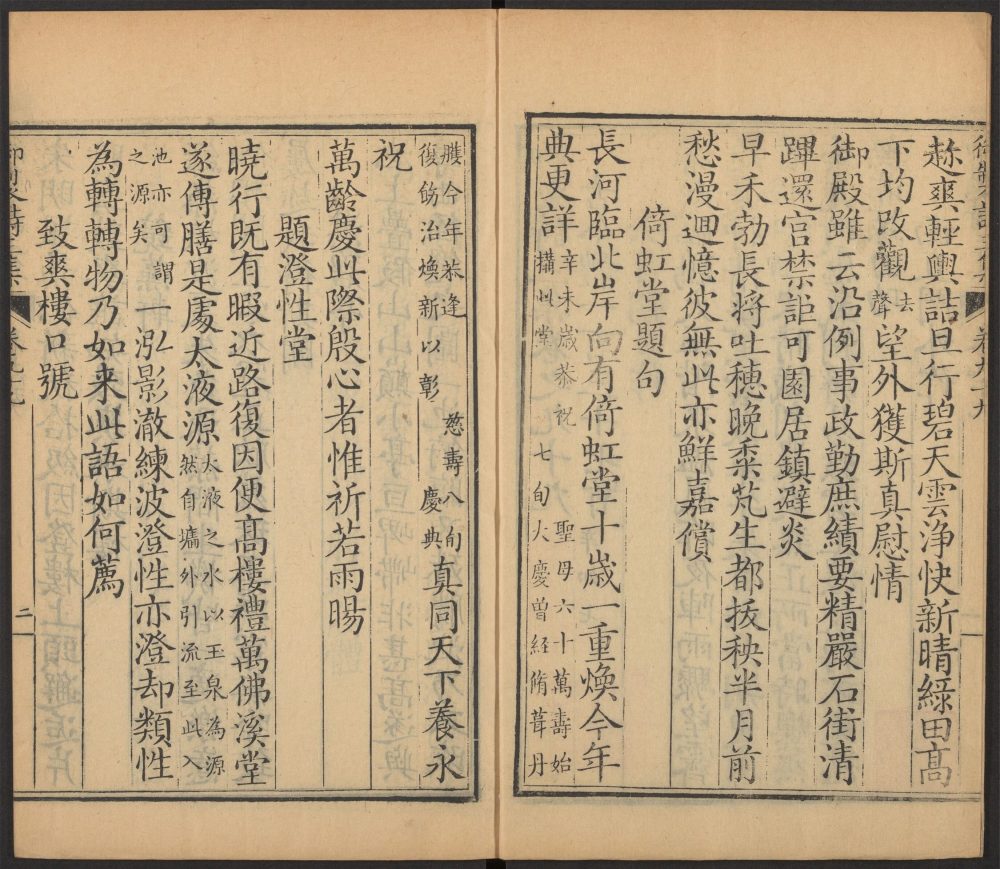 趂爽輕輿詰旦行碧天雲浄快新晴綠田高
下均改觀去聲望外獲斯真慰情
御殿雖云沿例事政勤庶績要精嚴石街清
蹕還宮禁詎可園居鎮避炎
早禾勃長將吐穗晚黍芃生都拔秧半月前
愁漫迴憶彼無此亦鮮嘉償
倚虹堂題句
長河臨北岸向有倚虹堂十歲一重煥今年
典更詳辛未歲恭祝聖母六十萬壽始搆此堂七旬大慶曾經脩葺丹
雘今年恭逢慈壽八旬復飭治煥新以彰慶典真同天下養永
祝
萬齡慶此際殷心者惟祈若雨暘
題澄性堂
曉行既有暇近路復因便髙樓禮萬佛溪堂
遂傳膳是處太液源太液之水以玉泉為源然自墉外引流至此入
池亦可謂之源矣一泓影澈練波澄性亦澄却類性
為轉轉物乃如来此語如何薦
致爽樓口號
二